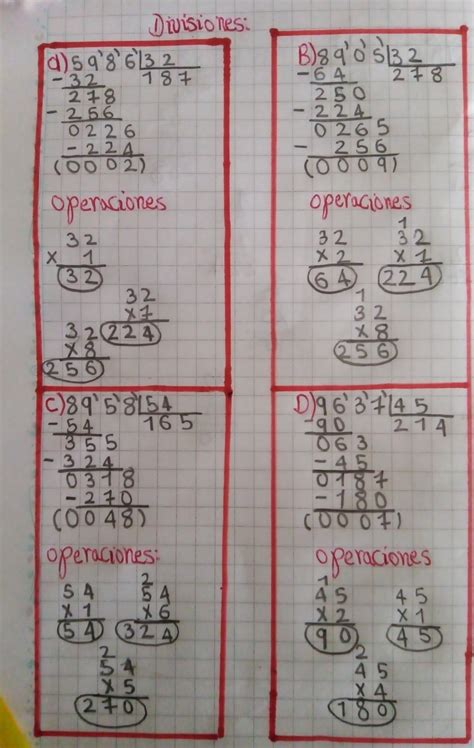 Divisiones:
a) 59'8'6' 32
- 32 187
278
- 256
0226
- 224
(0002)
operaciones
32
x 1
32
32
x7
224
32
x8
256
B) 89'0'5' 32
- 64 278
250
- 224
0265
- 256
(0009)
operaciones
32
x 2
64
1
32
x 7
224
1
32
x 8
256
C) 89'5'8' 54
- 54 165
355
- 324
0318
- 270
(0048)
operaciones:
54
x 1
54
2
54
x 6
324
2
54
x 5
270
D) 96'3'7' 45
- 90 214
063
- 45
0187
- 180
(0007)
operaciones
1
45
x 2
90
45
x 1
45
2
45
x 4
180